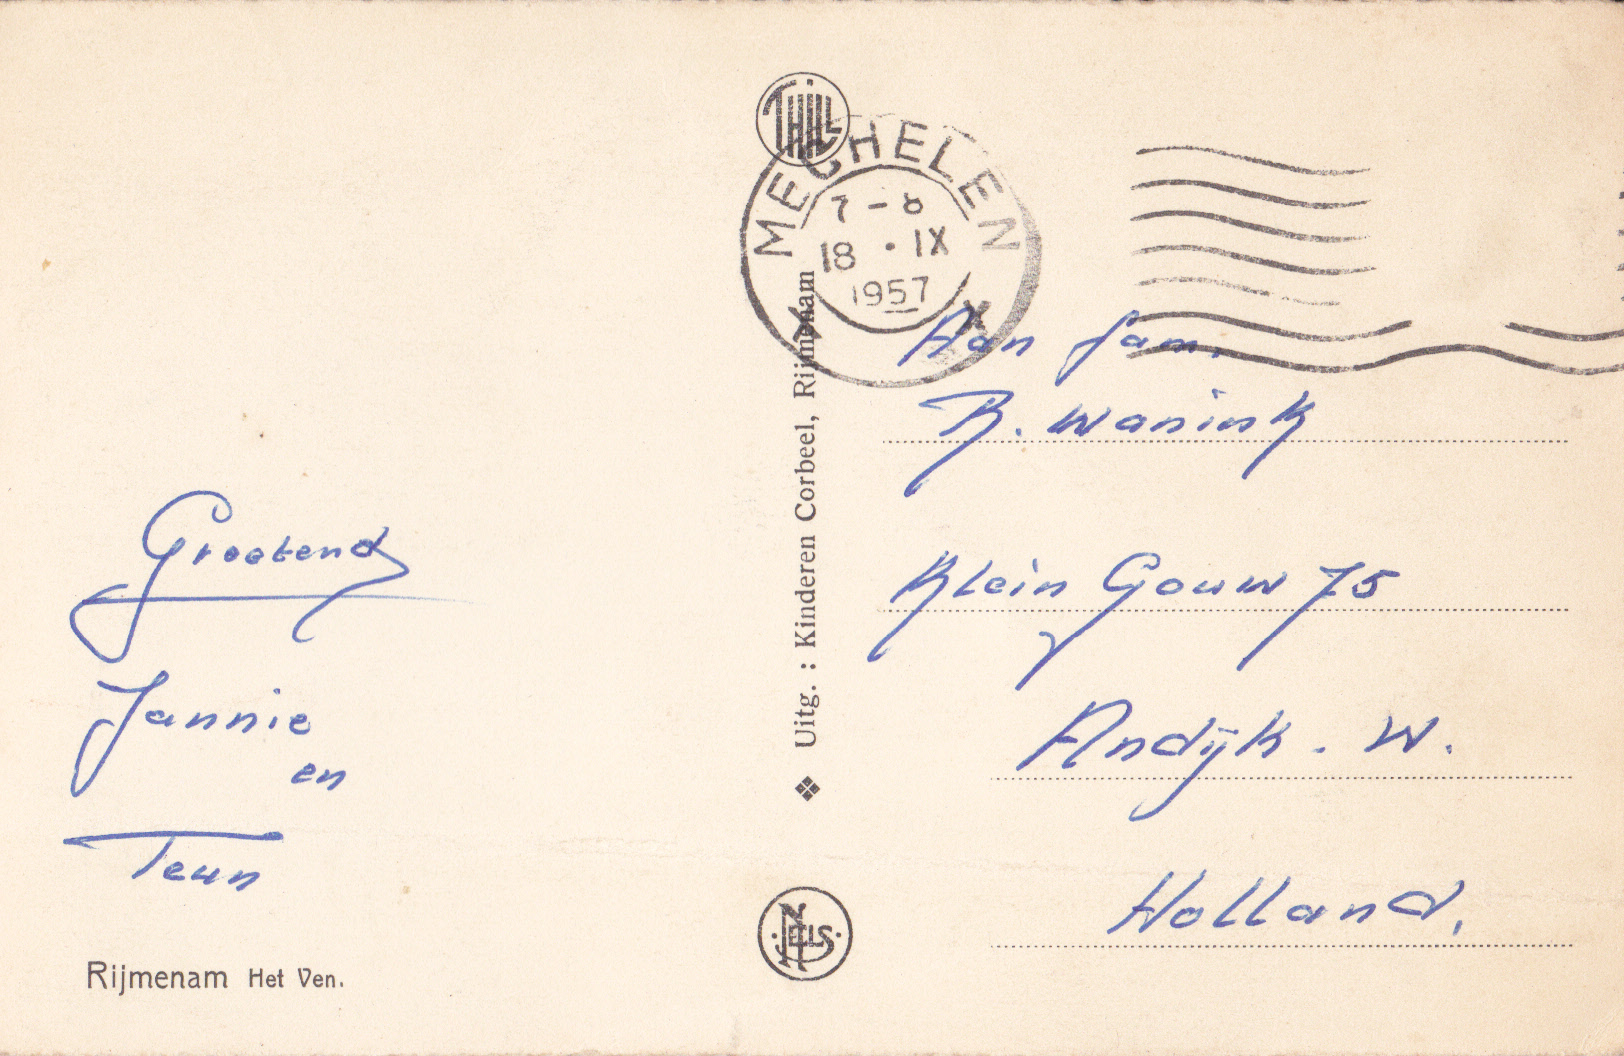 Groetend
Jannie
en
Teun
Rijmenam Het Ven.
THILL
MECHELEN
7 - 8
18 · IX
1957
Uitg. : Kinderen Corbeel, Rijmenam
NELS
Aan fam.
R. Wanink
Klein Gouw 75
Andijk. W.
Holland.